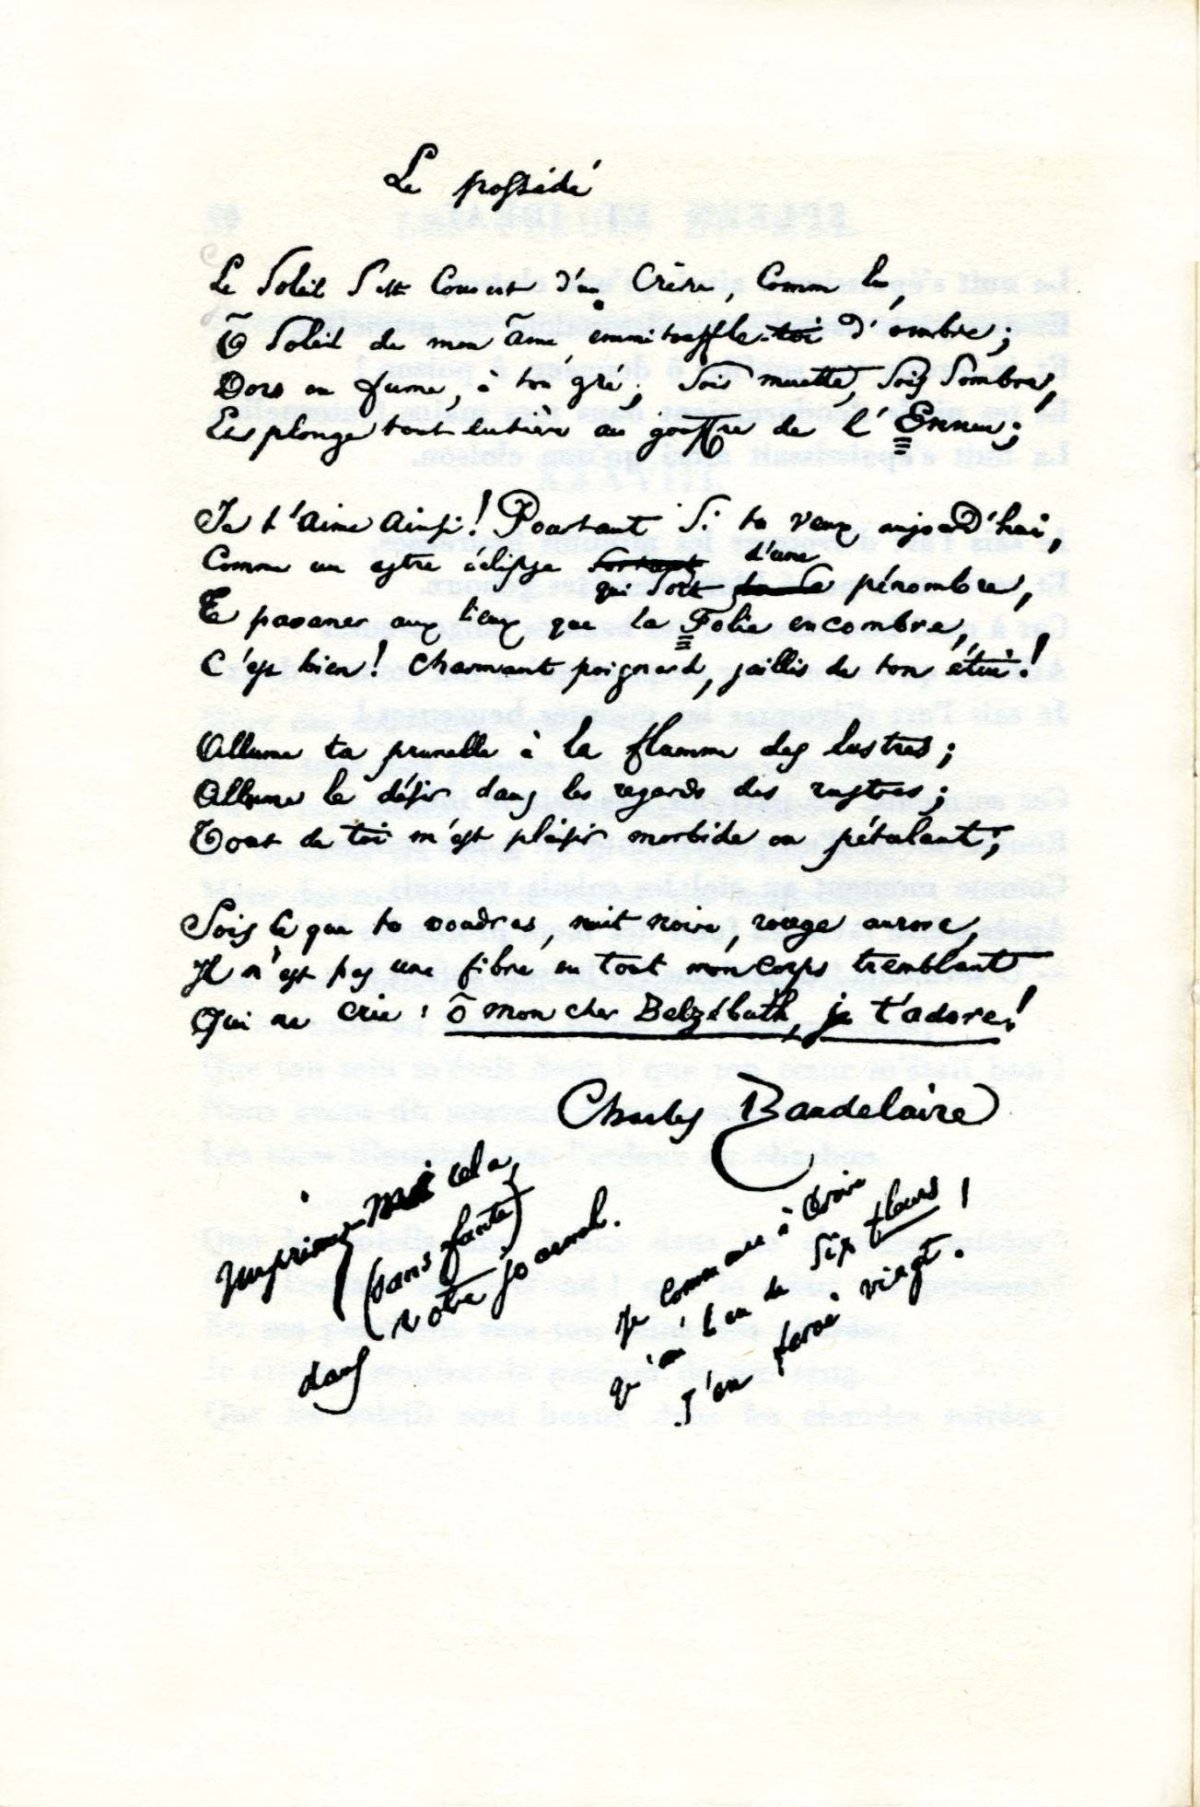 Le possédé
Le Soleil s'est couvert d'un crêpe, Comme lui,
Ô Soleil de mon âme, emmitouffle-toi d'ombre;
Dors ou fume, à ton gré; Sois muette, Sois Sombre,
Et plonge tout entière au gouffre de l'Ennui;
Je t'aime ainsi! Pourtant Si tu veux aujourd'hui,
Comme un astre éclipsé qui Sort d'une pénombre,
Te pavaner aux lieux que la Folie encombre,
C'est bien! Charmant poignard, jaillis de ton étui!
Allume ta prunelle à la flamme des lustres;
Allume le désir dans les regards des rustres;
Tout de toi m'est plaisir morbide ou pétulant;
Sois ce que tu voudras, nuit noire, rouge aurore,
Il n'est pas une fibre en tout mon corps tremblant
Qui ne crie: ô mon cher Belzébuth, je t'adore!
Charles Baudelaire
Imprimez-moi cela,
(sans faute)
dans votre journal.
Je commence à croire
qu'au lieu de Six fleurs,
j'en ferai vingt.